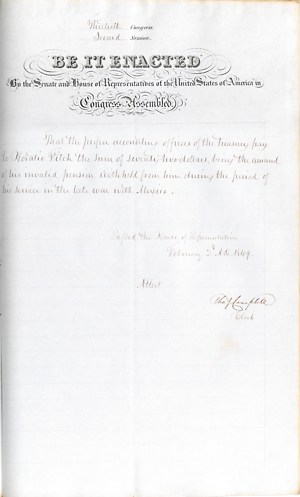 Thirtieth Congress
Second Session.
BE IT ENACTED
By the Senate and House of Representatives of the United States of America in
Congress Assembled
That the proper accounting officers of the treasury pay
to Horatio Fitch the sum of seventy two dollars, being the amount
of his invalid pension withheld from him during the period of
his service in the late war with Mexico.
Passed the House of Representatives
February 3d A.D. 1849.
Attest
Tho. J. Campbell
Clerk